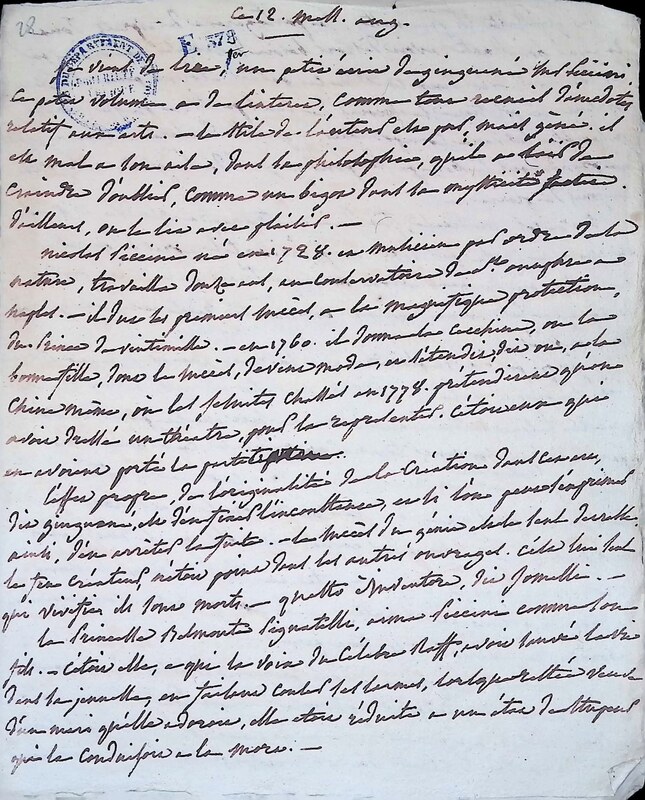 28
ce 12. mess. an 9.
E. 378
je viens de lire, un petit écrit de ginguené sur Piccini
ce petit volume a de l'interet, comme tout recueil d'anecdotes
relatif aux arts. — le stile de l'auteur est pur, mais gêné. il
est mal a son aise, dans la philosophie, qu'il a l'air de
craindre d'oublier, comme un bigot dans la mysticité
d'ailleurs, on le lit avec plaisir. —
nicolas Piccini né en 1728. et musicien par ordre de la
nature, travailla douze ans, au conservatoire de St. onuphre a
naples. — il dut ses premiers succès, a la magnifique protection,
du Prince de ventimille. — en 1760. il donna la cecchina, ou la
bonne fille, dont le succès, devint mode, et s'étendit, dit on, a la
Chine même, où les jésuites chassés en 1778. prétendirent qu'on
avoit dressé un théatre, pour la représenter. c'étoit eux qui
en avoient porté la partition.
L'effet propre, de l'originalité de la Création dans les arts,
dit ginguené, est d'en fixer l'inconstance, et si l'on peut s'exprimer
ainsi, d'en arrêter la fuite. — le succès du génie est le seul durable
le feu créateur n'étoit point dans les autres ouvrages. c'est lui seul
qui vivifie ils sont morts. — questo è inventore, dit jomelli. —
la Princesse Belmonte Pignatelli, aima Piccini comme son
fils. — c'étoit elle, a qui la voix du célèbre Raff, avoit sauvé la vie
dans sa jeunesse, en faisant couler ses larmes, lorsque restée veuve
d'un mari qu'elle adoroit, elle étoit réduite a un état de stupeur
qui la conduisoit a la mort. —